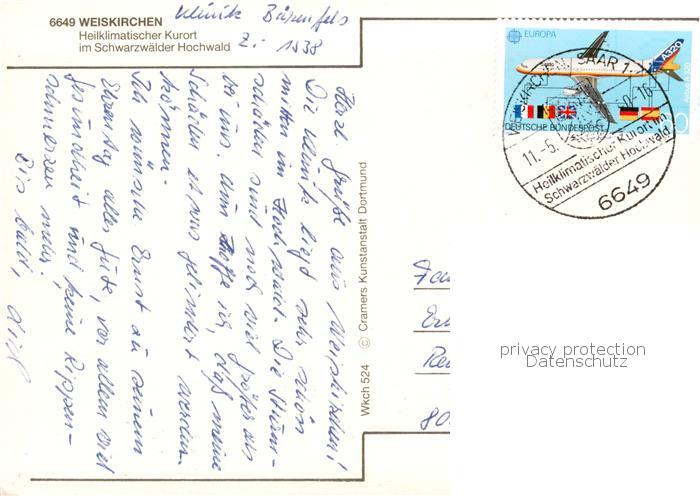 6649 WEISKIRCHEN
Heilklimatischer Kurort
im Schwarzwälder Hochwald
Klinik Bärenfels
Zi 1538
Herzl. Grüße aus Weiskirchen!
Die Klinik liegt sehr schön
mitten im Hochwald. Die Sturm-
schäden sind noch viel größer als
bei uns. Nun hoffe ich, daß meine
Schäden etwas gelindert werden
können.
Ich wünsche Ernst zu seinem
Ehrentag alles Gute, vor allem viel
Gesundheit und keine Rippen-
schmerzen mehr.
Bis bald,
Wkch 524 © Cramers Kunstanstalt Dortmund
EUROPA
A320
DEUTSCHE BUNDESPOST
WEISKIRCHEN, SAAR 1
11.-5.
Heilklimatischer Kurort im
Schwarzwälder Hochwald
6649
Fa
Re
80
privacy protection
Datenschutz